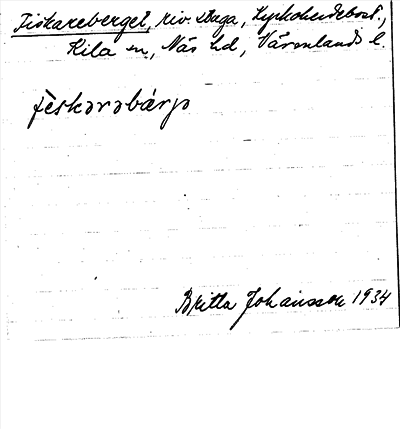 Fiskareberget, riv. stuga, Kyrkohedebost.,
Kila sn, Näs hd, Värmlands l.
fèskarabárjə
Britta Johansson 1934